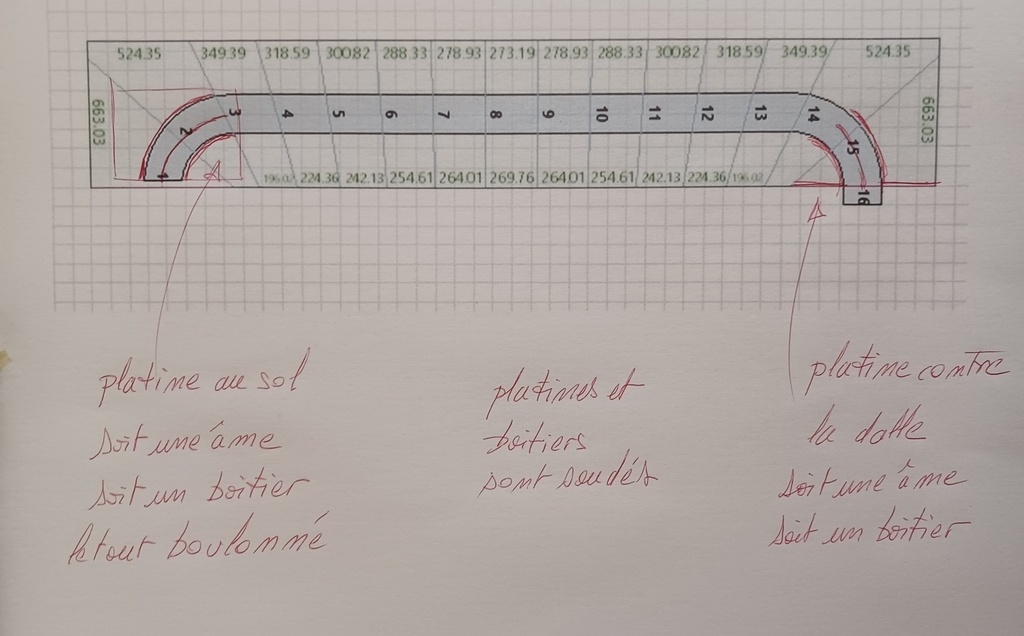 524.35 349.39 318.59 300.82 288.33 278.93 273.19 278.93 288.33 300.82 318.59 349.39 524.35
663.03 1 2 3 4 5 6 7 8 9 10 11 12 13 14 15 16 663.03
196.02 224.36 242.13 254.61 264.01 269.76 264.01 254.61 242.13 224.36 196.02
platine au sol
soit une âme
soit un boitier
le tout boulonné
platines et
boitiers
sont soudés
platine contre
la dalle
soit une âme
soit un boitier